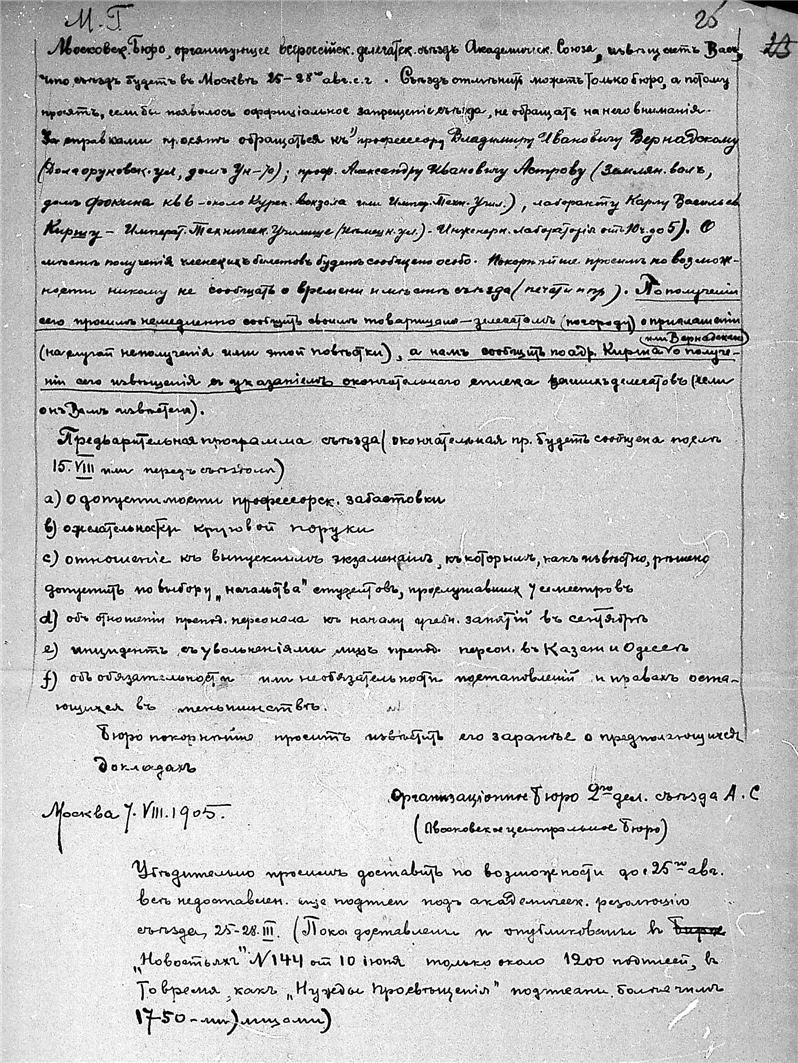 М. Г.
25
23
Московск. Бюро, организующее всероссійск. делегатск. съездъ Академическ. Союза, извѣщаетъ Васъ,
что съездъ будетъ въ Москвѣ 25–28го авг. с.г. Съездъ отмѣнить можетъ только бюро, а потому
просятъ, если бы появилось оффиціальное запрещеніе съезда, не обращать на него вниманія.
За справками просятъ обращаться къ профессору Владимиру Ивановичу Вернадскому
(Долгоруковск. ул., домъ Ун-); проф. Александру Ивановичу Астрову (Землян. валъ,
домъ Фокина кв 6 – около Курск. вокзала или Импер. Техн. Учил.), лаборанту Карлу Васильев.
Киршу – Императ. Техническ. Училище (Нѣмецк. ул.) – Инженерн. лабораторія отъ 10ч. до 5). О
мѣстѣ полученія членскихъ билетовъ будетъ сообщено особо. Покорнѣйше просимъ по возмож-
ности никому не сообщать о времени и мѣстѣ съезда (печати и пр.). По полученіи
сего просимъ немедленно сообщить своимъ товарищамъ – делегатамъ (по городу) о приглашеніи
(на случай неполученія ими этой повѣстки), а намъ сообщить по адр. Кирша (или Вернадскаго) о получе-
ніи сего извѣщенія съ указаніемъ окончательнаго списка вашихъ делегатовъ (если
онъ Вамъ извѣстенъ).
Предварительная программа съезда (окончательная пр. будетъ сообщена послѣ
15.VIII или передъ съездомъ)
a) о допустимости профессорск. забастовки
b) о желательности круговой поруки
c) отношеніе къ выпускнымъ экзаменамъ, къ которымъ, какъ извѣстно, рѣшено
допустить по выбору „начальства" студентовъ, прослушавшихъ 7 семестровъ
d) объ отношеніи препод. персонала къ началу учебн. занятій въ сентябрѣ
e) инцидентъ съ увольненіями лицъ препод. персон. въ Казани и Одессѣ
f) объ обязательности или необязательности постановленій и правахъ оста-
ющихся въ меньшинствѣ.
Бюро покорнѣйше проситъ извѣстить его заранѣе о предполагающихся
докладахъ
Организаціонное Бюро 2го дел. съезда А. С
Москва 7. VIII. 1905.
(Московское центральное Бюро)
Убѣдительно просимъ доставить по возможности до 25го авг.
всѣ недоставлен. еще подписи подъ академическ. резолюцію
съезда 25-28.III. (Пока доставлены и опубликованы въ
„Новостяхъ" N 144 от 10 іюня только около 1200 подписей, въ
то время, какъ „Нужды Просвѣщенія" подписаны болѣе чѣмъ
1750-ми) лицами)